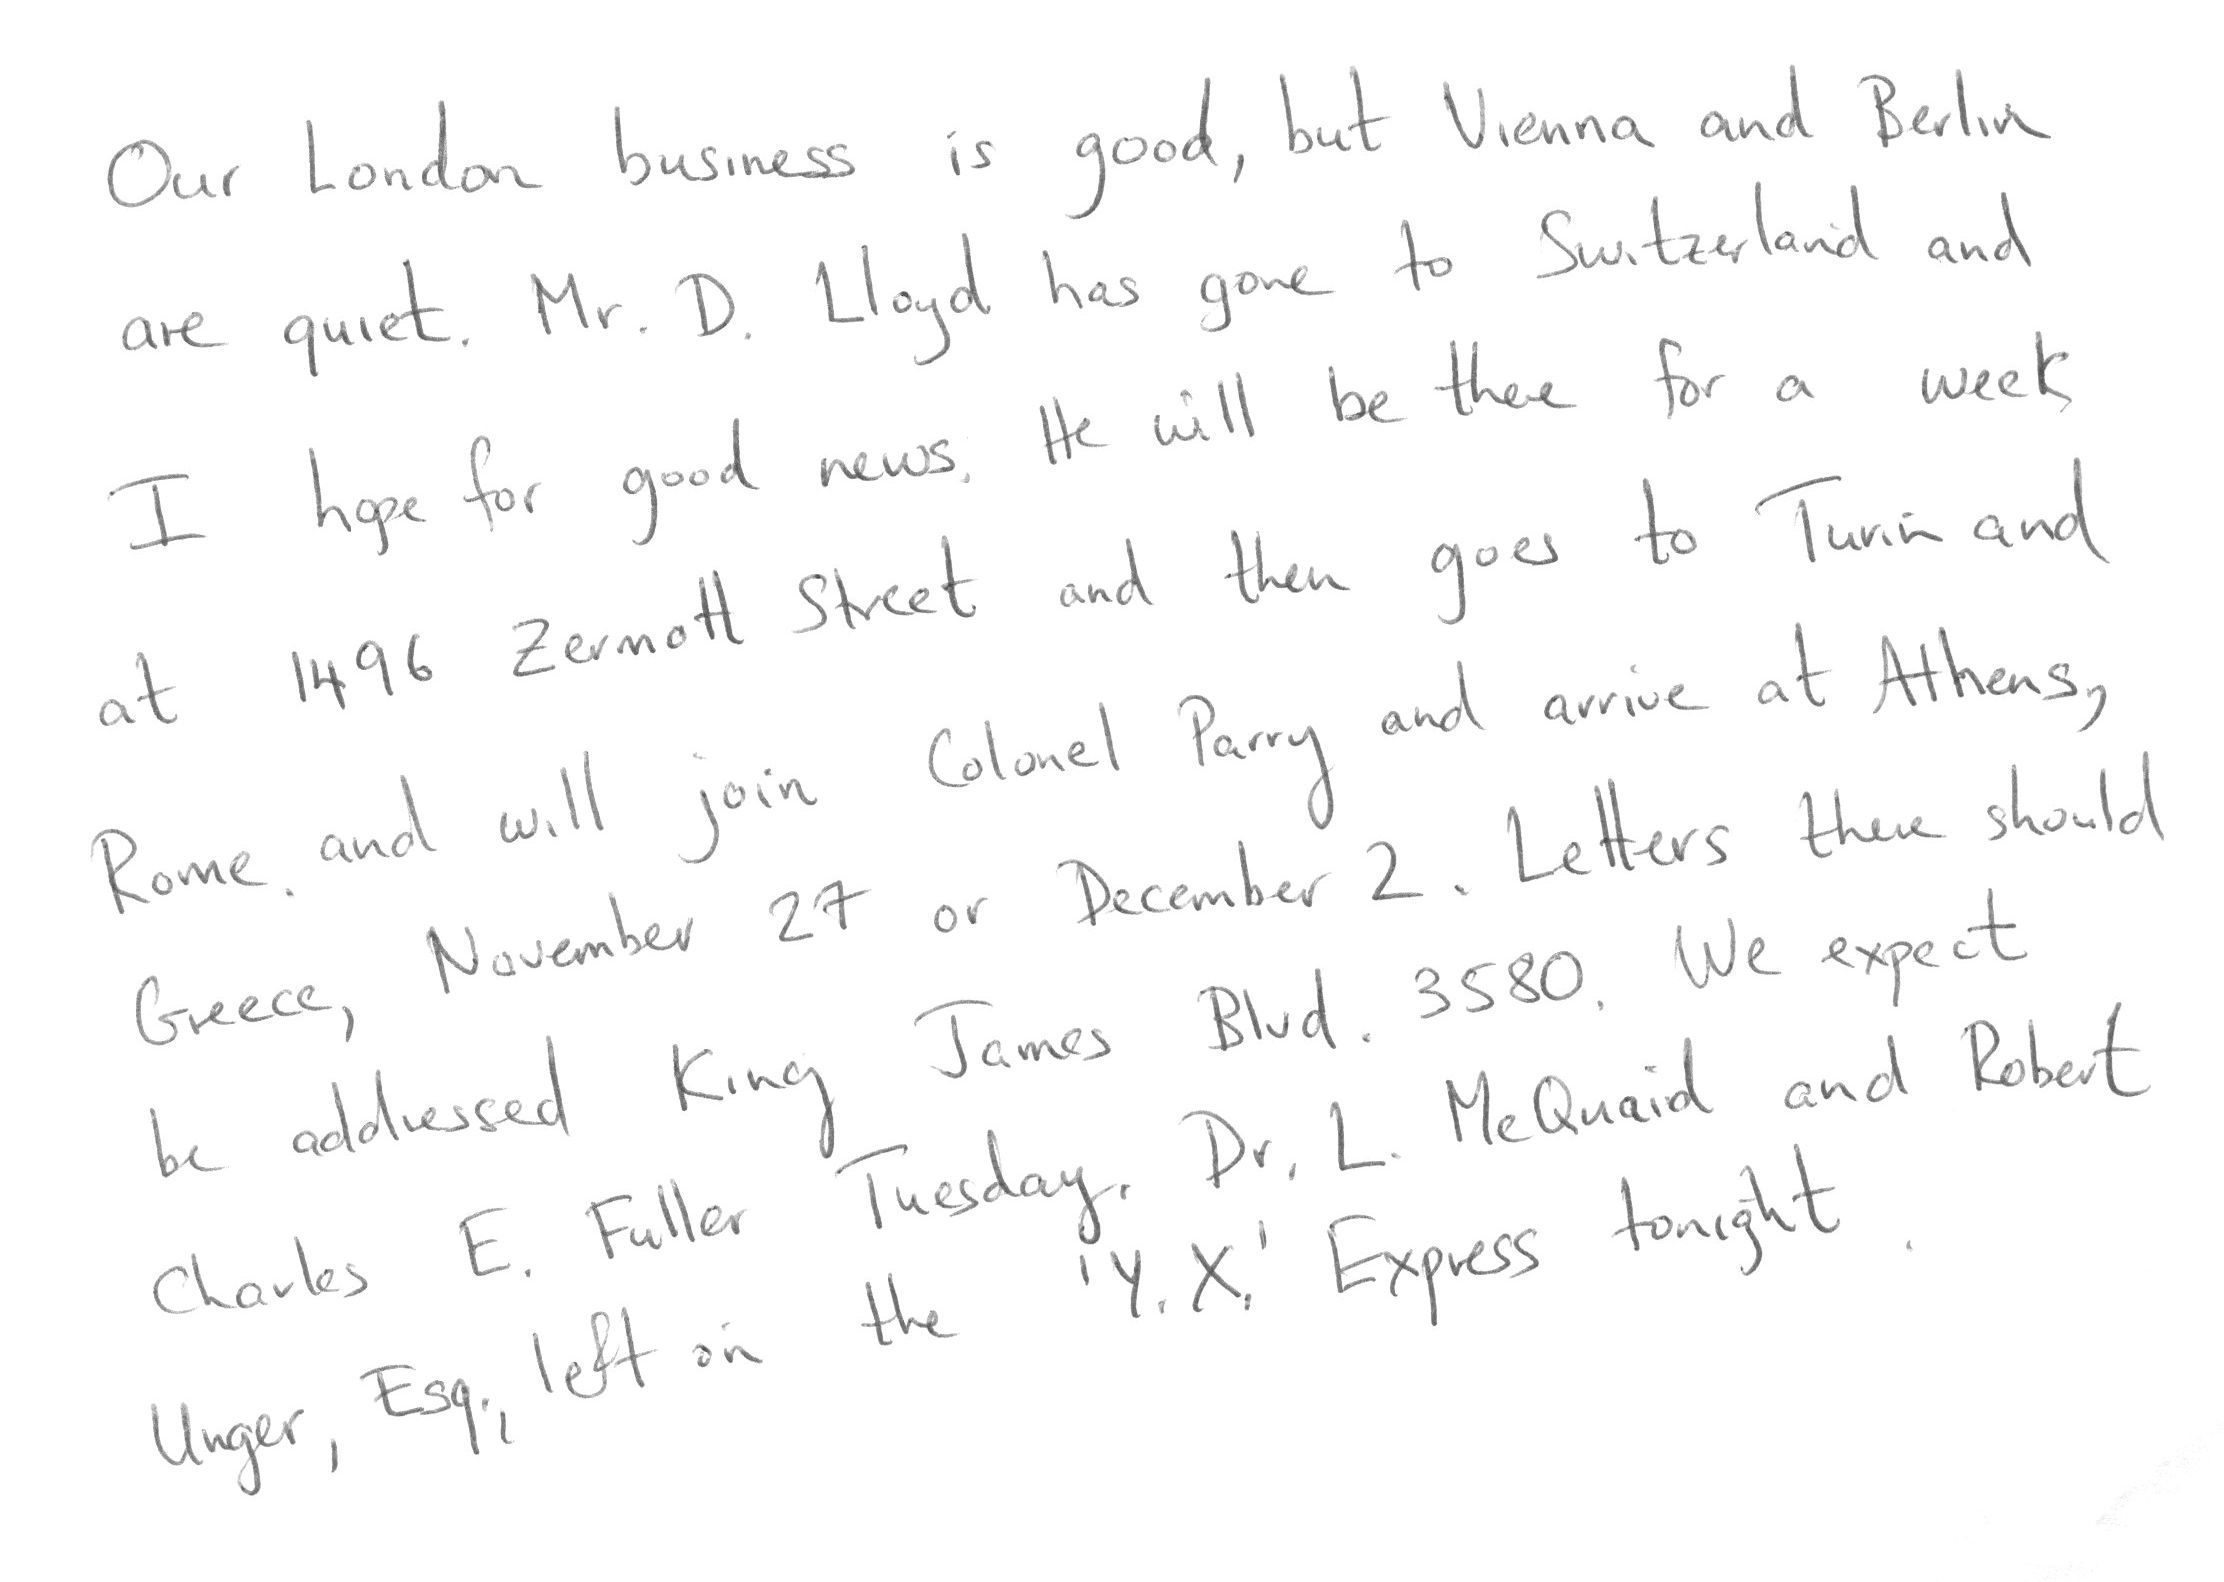 Our London business is good, but Vienna and Berlin
are quiet. Mr. D. Lloyd has gone to Switzerland and
I hope for good news. He will be there for a week
at 1496 Zermott Street and then goes to Turin and
Rome. and will join Colonel Parry and arrive at Athens,
Greece, November 27 or December 2. Letters there should
be addressed King James Blvd. 3580. We expect
Charles E. Fuller Tuesday. Dr. L. McQuaid and Robert
Unger, Esq., left on the 'Y.X.' Express tonight.